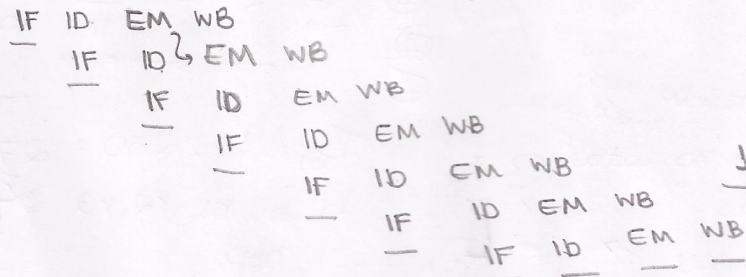 IF ID EM WB
IF ID EM WB
IF ID EM WB
IF ID EM WB
IF ID EM WB
IF ID EM WB
IF ID EM WB